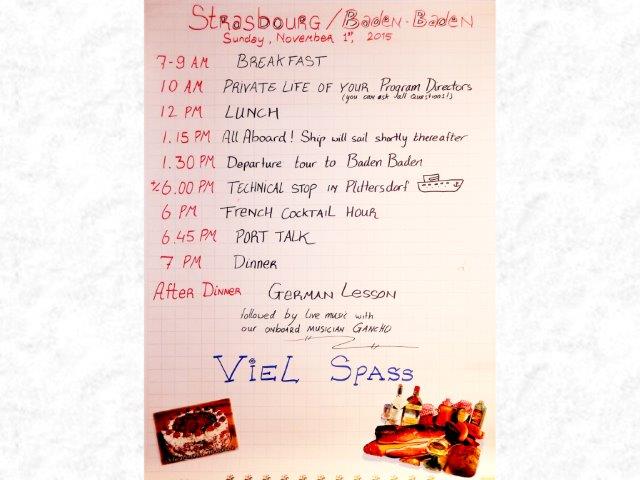 Strasbourg / Baden-Baden
Sunday, November 1st, 2015
7-9 AM BREAKFAST
10 AM PRIVATE LIFE OF YOUR Program Directors
(you can ask all questions!)
12 PM LUNCH
1.15 PM All Aboard! Ship will sail shortly thereafter
1.30 PM Departure tour to Baden Baden
± 6.00 PM TECHNICAL STOP IN Plittersdorf
6 PM FRENCH COCKTAIL HOUR
6.45 PM PORT TALK
7 PM Dinner
AFTER DINNER GERMAN LESSON
followed by live music with
our onboard MUSICIAN GANCHO
VIEL SPASS